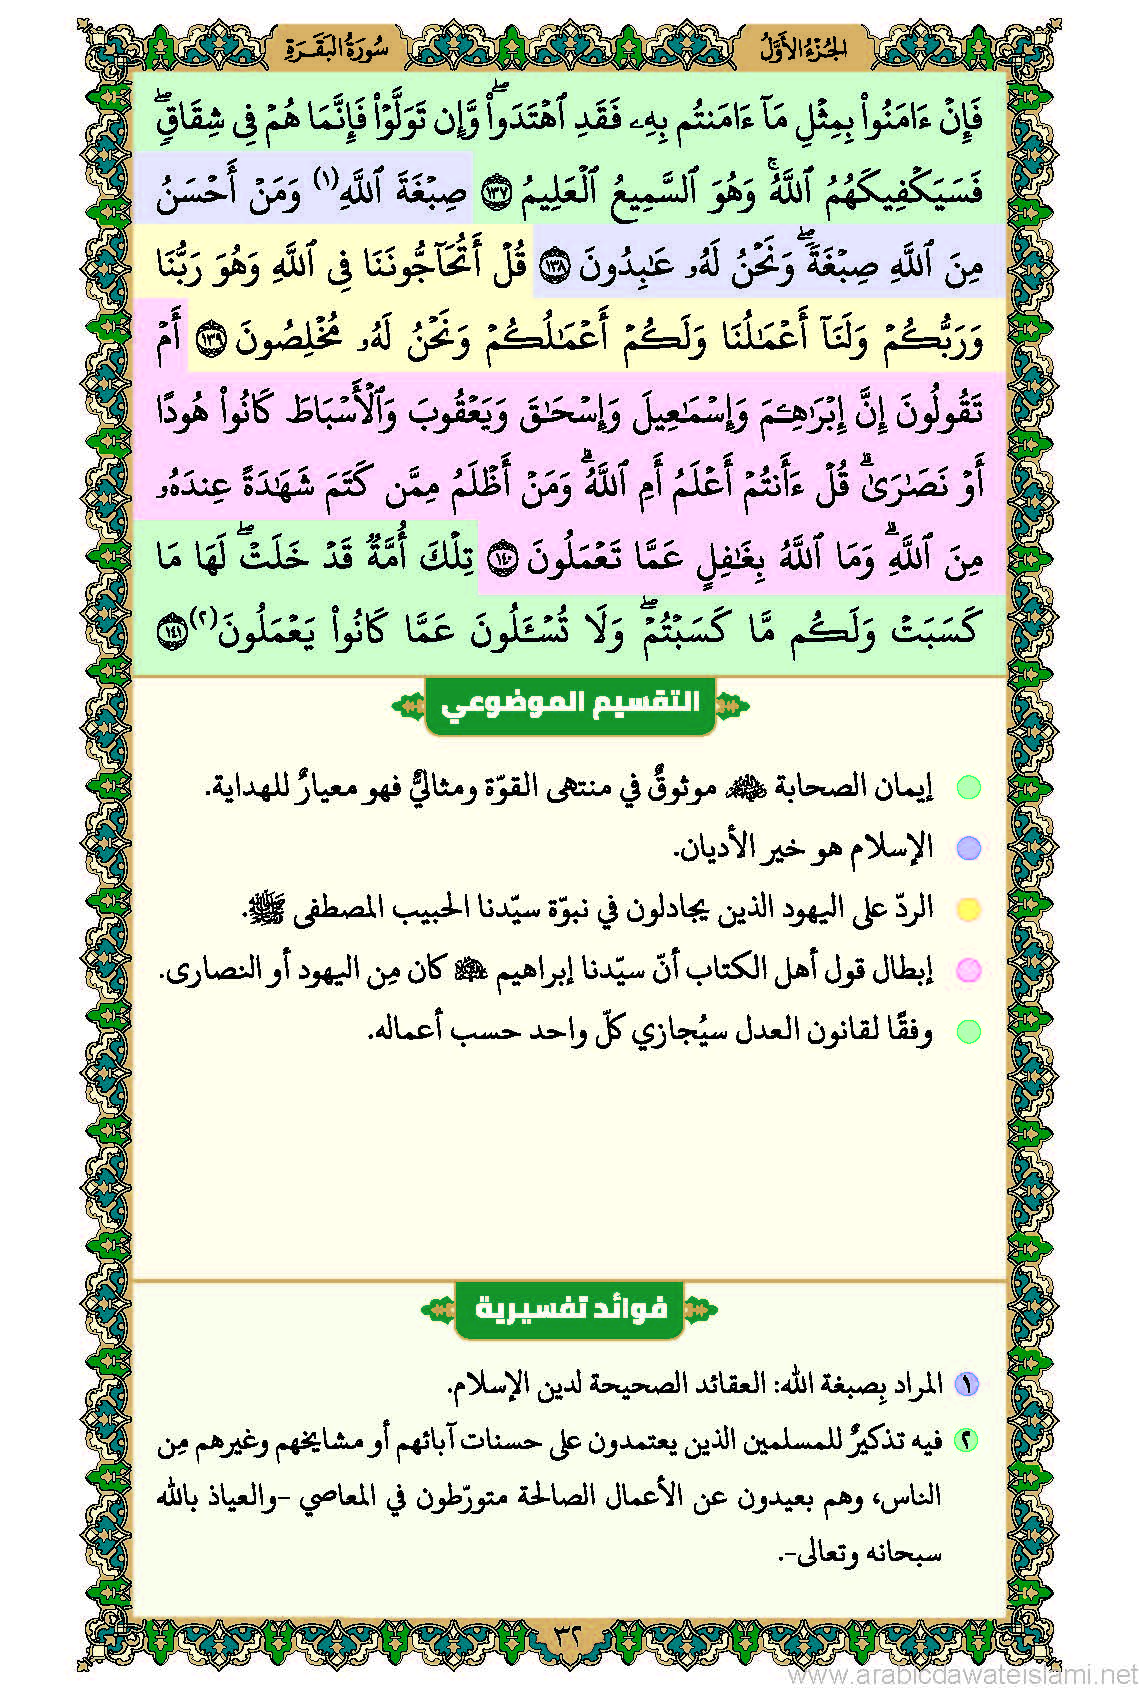 الجُزْءُ الأَوَّلُ
سُورَةُ البَقَرَةِ
فَإِنْ ءَامَنُواْ بِمِثْلِ مَآ ءَامَنتُم بِهِۦ فَقَدِ ٱهْتَدَواْۖ وَّإِن تَوَلَّوْاْ فَإِنَّمَا هُمْ فِى شِقَاقٖۖ
فَسَيَكْفِيكَهُمُ ٱللَّهُۚ وَهُوَ ٱلسَّمِيعُ ٱلْعَلِيمُ ١٣٧ صِبْغَةَ ٱللَّهِ(١) وَمَنْ أَحْسَنُ
مِنَ ٱللَّهِ صِبْغَةٗۖ وَنَحْنُ لَهُۥ عَٰبِدُونَ ١٣٨ قُلْ أَتُحَآجُّونَنَا فِى ٱللَّهِ وَهُوَ رَبُّنَا
وَرَبُّكُمْ وَلَنَآ أَعْمَٰلُنَا وَلَكُمْ أَعْمَٰلُكُمْ وَنَحْنُ لَهُۥ مُخْلِصُونَ ١٣٩ أَمْ
تَقُولُونَ إِنَّ إِبْرَٰهِـۧمَ وَإِسْمَٰعِيلَ وَإِسْحَٰقَ وَيَعْقُوبَ وَٱلْأَسْبَاطَ كَانُواْ هُودًا
أَوْ نَصَٰرَىٰۗ قُلْ ءَأَنتُمْ أَعْلَمُ أَمِ ٱللَّهُۗ وَمَنْ أَظْلَمُ مِمَّن كَتَمَ شَهَٰدَةً عِندَهُۥ
مِنَ ٱللَّهِۗ وَمَا ٱللَّهُ بِغَٰفِلٍ عَمَّا تَعْمَلُونَ ١٤٠ تِلْكَ أُمَّةٞ قَدْ خَلَتْۖ لَهَا مَا
كَسَبَتْ وَلَكُم مَّا كَسَبْتُمْۖ وَلَا تُسْـَٔلُونَ عَمَّا كَانُواْ يَعْمَلُونَ(٢) ١٤١
التقسيم الموضوعي
إيمان الصحابة ﷡ موثوقٌ في منتهى القوّة ومثاليٌّ فهو معيارٌ للهداية.
الإسلام هو خير الأديان.
الردّ على اليهود الذين يجادلون في نبوّة سيّدنا الحبيب المصطفى ﷺ.
إبطال قول أهل الكتاب أنّ سيّدنا إبراهيم كان مِن اليهود أو النصارى.
وفقًا لقانون العدل سيُجازي كلّ واحد حسب أعماله.
فوائد تفسيرية
١ المراد بِصبغة الله: العقائد الصحيحة لدين الإسلام.
٢ فيه تذكيرٌ للمسلمين الذين يعتمدون على حسنات آبائهم أو مشايخهم وغيرهم مِن
الناس، وهم بعيدون عن الأعمال الصالحة متورّطون في المعاصي -والعياذ بالله
سبحانه وتعالى-.
٣٢
www.arabicdawateislami.net